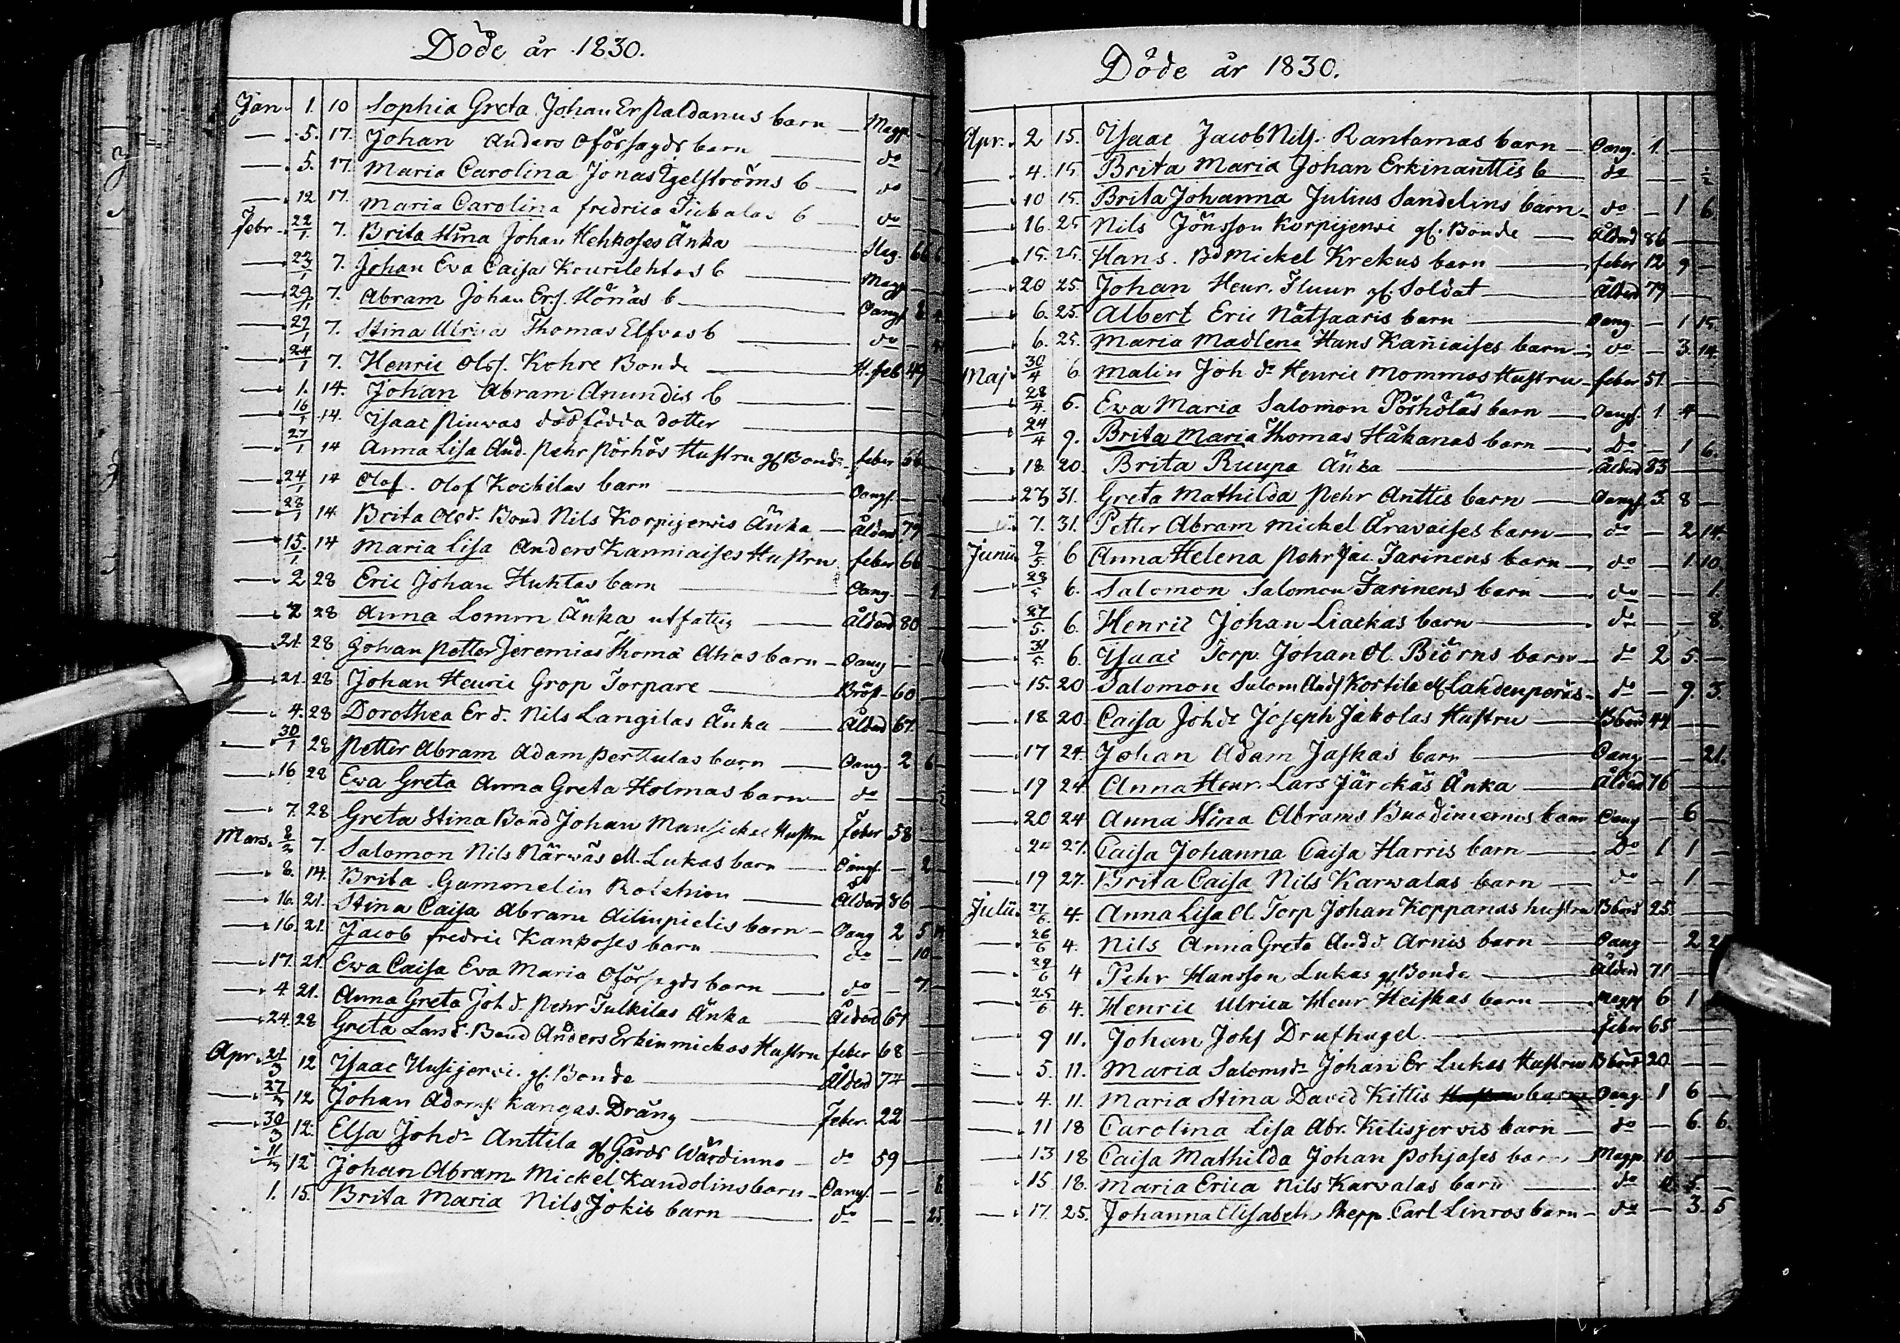 Döde år 1830.
Jan. 1. 10 Sophia Greta Johan Er. Paldanus barn — Magp. —
— 5. 17. Johan Anders Oförsagds barn — do —
— 5. 17. Maria Carolina Jonas Egelströms b — do
— 12 17. Maria Carolina fredrica b — do
Febr. 22/1 7. Brita Stina Johan Hehkoses Änka — 66
— 23/1 7. Johan Eva Caisa Kourilehtos b — Magp
— 29/1 7. Abram Johan Ers. Hönäs b — Oangf.
— 29/1 7. Stina Ulrica Thomas Elfvas b — do —
— 24/1 7. Henric Ols. Kohre Bonde — H. feb 49
— 1. 14. Johan Abram Anundis b —
— 16/1 14. Isaac Pinwas dödfödda dotter —
— 27/1 14 Anna Lisa And. Pehr Pörhös Hustru gl. Bond. feber
— 24/1 14 Olof. Olof Kockilas barn — Oangf. —
— 28/1 14 Brita Olsd. Bond Nils Korpijerwis Änka — Ålderd 79
— 15/1 14 Maria Lisa Anders Kanniaises Hustru feber 66
— 2 28 Eric Johan Huhtas barn — Oang —
— 2 28 Anna Lomm Änka utfattig — Ålderd 80 —
— 21. 28 Johan Petter Jeremias Thoma Ahos barn — Oang —
— 21. 28 Johan Henric Grop Torpare — Bröst 60 —
— 4. 28 Dorothea Er d. Nils Langilas Änka — Ålderd 67. —
— 30/1 28 Petter Abram Adam Perttulas barn — Oang. 2 6
— 16 28 Eva Greta Anna Greta Holmas barn — do —
— 7. 28 Greta Stina Bond Johan Mansickas Hustru feber 58 —
Mars. 7. Salomon Nils Närwäs el. Lukas barn — Oangf. — 2
— 8. 14. Brita Gammelin — Ålderd 86 —
— 16. 21. Stina Caisa Abram Ailinpietis barn — Oang 2 5
— 16. 21. Jacob fredric Kanposes barn — do — 10
— 17. 21. Eva Caisa Eva Maria Oförsagds barn — do — 7
— 4 21. Anna Greta Joh d. Pehr Tulkilas Änka — Ålderd 67
— 24. 28 Greta Lars d. Bond Anders Erkinmickos Hustru feber 68 —
Apr. 21/3 12 Isaac Uusijerwi gl. Bonde — Ålderd 74 —
— 27/3 12 Johan Adams. Kangas. Dräng — Feber. 22 —
— 30/3 12. Elsa Johdr Anttila gl Gårds Wärdinna — do 59 —
— 11/3 12 Johan Abram Mickel Kandolins barn — Oangf. — — 8.
1. 15. Brita Maria Nils Jokis barn — do — — 25
Döde år 1830.
Apr. 2 15. Isaac Jacob Nils. Rantamas barn — Oang. 1. —
— 4. 15 Brita Maria Johan Erkinanttis b — do — — 1/2
— 10 15. Brita Johanna Julius Sandelins barn — do — 1 6
— 16. 25 Nils Jönsson Korpijerwi gl. Bonde — Ålderd 86 —
— 15. 25. Hans. Bd Mickel Krekus barn — feber 12 9 —
— 20 25 Johan Henr. Fluur gl. Soldat — Ålderd 79 —
— 6. 25. Albert Eric Nätsaaris barn — Oang — 1 15.
— 6. 25. Maria Madlena Hans Kaniaises barn — do — 3. 14.
Maj. 30/4 6 Malin Joh dr Henric Mommos Hustru — feber 51. —
— 28/4 6. Eva Maria Salomon Pörhöläs barn — Oangf. 1 4 —
— 24/4 9. Brita Maria Thomas Håkanas barn — Do 1 6.
— 18. 20. Brita Ruupa Änka — Ålderd 83 —
— 23 31. Greta Mathilda Pehr Anttis barn — Oangf. 3. 8 —
— 7. 31. Petter Abram Mickel Äravaises barn — do — 2 14.
Junii 9/5 6 Anna Helena Pehr Jac. Farinens barn — do — 1 10.
— 23/5 6. Salomon Salomon Farinens barn — do — — 1.
— 6. Henric Johan Liackas barn — do — — 8.
— 31/5 6. Isaac Torp. Johan Ol. Biörns barn — do 2 5. —
— 15. 20 Salomon Salom. Kortila el Lahdenperäs — do — 9. 3.
— 18 20. Caisa Joh dr Joseph Jakolas Hustru — Bbörd 44 —
— 17 24. Johan Adam Jaskas barn — Oang — — 21.
— 19 24. Anna Henr. Lars Järckäs Änka — Ålderd 76 —
— 20 24 Anna Stina Abrams barn Oang — 6 —
— 24 27. Caisa Johanna Caisa Harris barn — Do 1 1 —
— 19 27. Brita Caisa Nils Karwalas barn — do — 1 —
Julii 27/6 4. Anna Lisa Torp Johan Koppanas hustru Bbörd 25. —
— 26/6 4. Nils Anna Greta And d Arnis barn — Oang — 2
— 29/6 4 Pehr Hansson Lukas gl Bonde — Ålderd 71. —
— 25/6 4. Henric Ulrica Henr Heiskas barn — Magp 6 1
— 9 11. Johan Johs Drufhagel. — feber 65 —
— 5. 11. Maria Salomsdr Johan Er Lukas Hustru Bbörd 20. —
— 4. 11. Maria Stina David Kittis barn Oang. 1 6 —
— 11 18 Carolina Lisa Abr. Kilisjervis barn — do — 6. 6.
— 13 18 Caisa Mathilda Johan Pohjoses barn Magp. 10 —
— 15 18. Maria Erica Nils Karwalas barn — do 5 —
— 17. 25. Johanna Elisabeth Skepp. Carl Linros barn — do — 3. 5